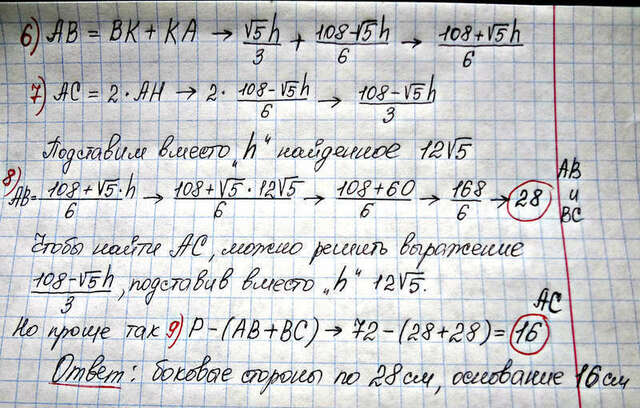 6) AB = BK + KA → √5h/3 + 108-√5h/6 → 108+√5h/6
7) AC = 2 · AH → 2 · 108-√5h/6 → 108-√5h/3
Подставим вместо „h" найденное 12√5
8) AB = 108+√5·h/6 → 108+√5·12√5/6 → 108+60/6 → 168/6 → 28 AB и BC
Чтобы найти AC, можно решить выражение
108-√5h/3, подставив вместо „h" 12√5.
Но проще так 9) P-(AB+BC) → 72-(28+28)= 16 AC
Ответ: боковые стороны по 28 см, основание 16 см